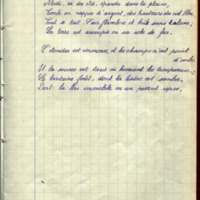 Midi, roi des étés, épandu dans la plaine,
Tombe en nappes d'argent, des hauteurs du ciel bleu
Tout se tait. L'air flamboie et brûle sans haleine;
La terre est assoupie en sa robe de feu.
L'étendue est immense, et les champs n'ont point d'ombre
Et la source est tarie où buvaient les troupeaux;
La lointaine forêt, dont la lisière est sombre,
Dort là-bas immobile en un pesant repos.